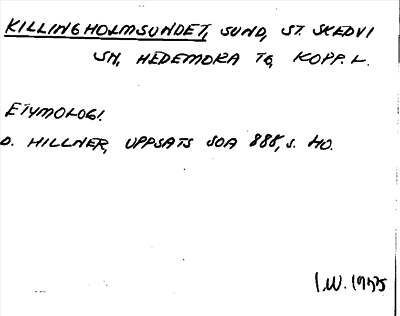 KILLINGHOLMSUNDET, SUND, ST. SKEDVI
SN, HEDEMORA TG, KOPP. L.
ETYMOLOGI.
O. HILLNER, UPPSATS SOA 888, S. 40.
I.W. 1975